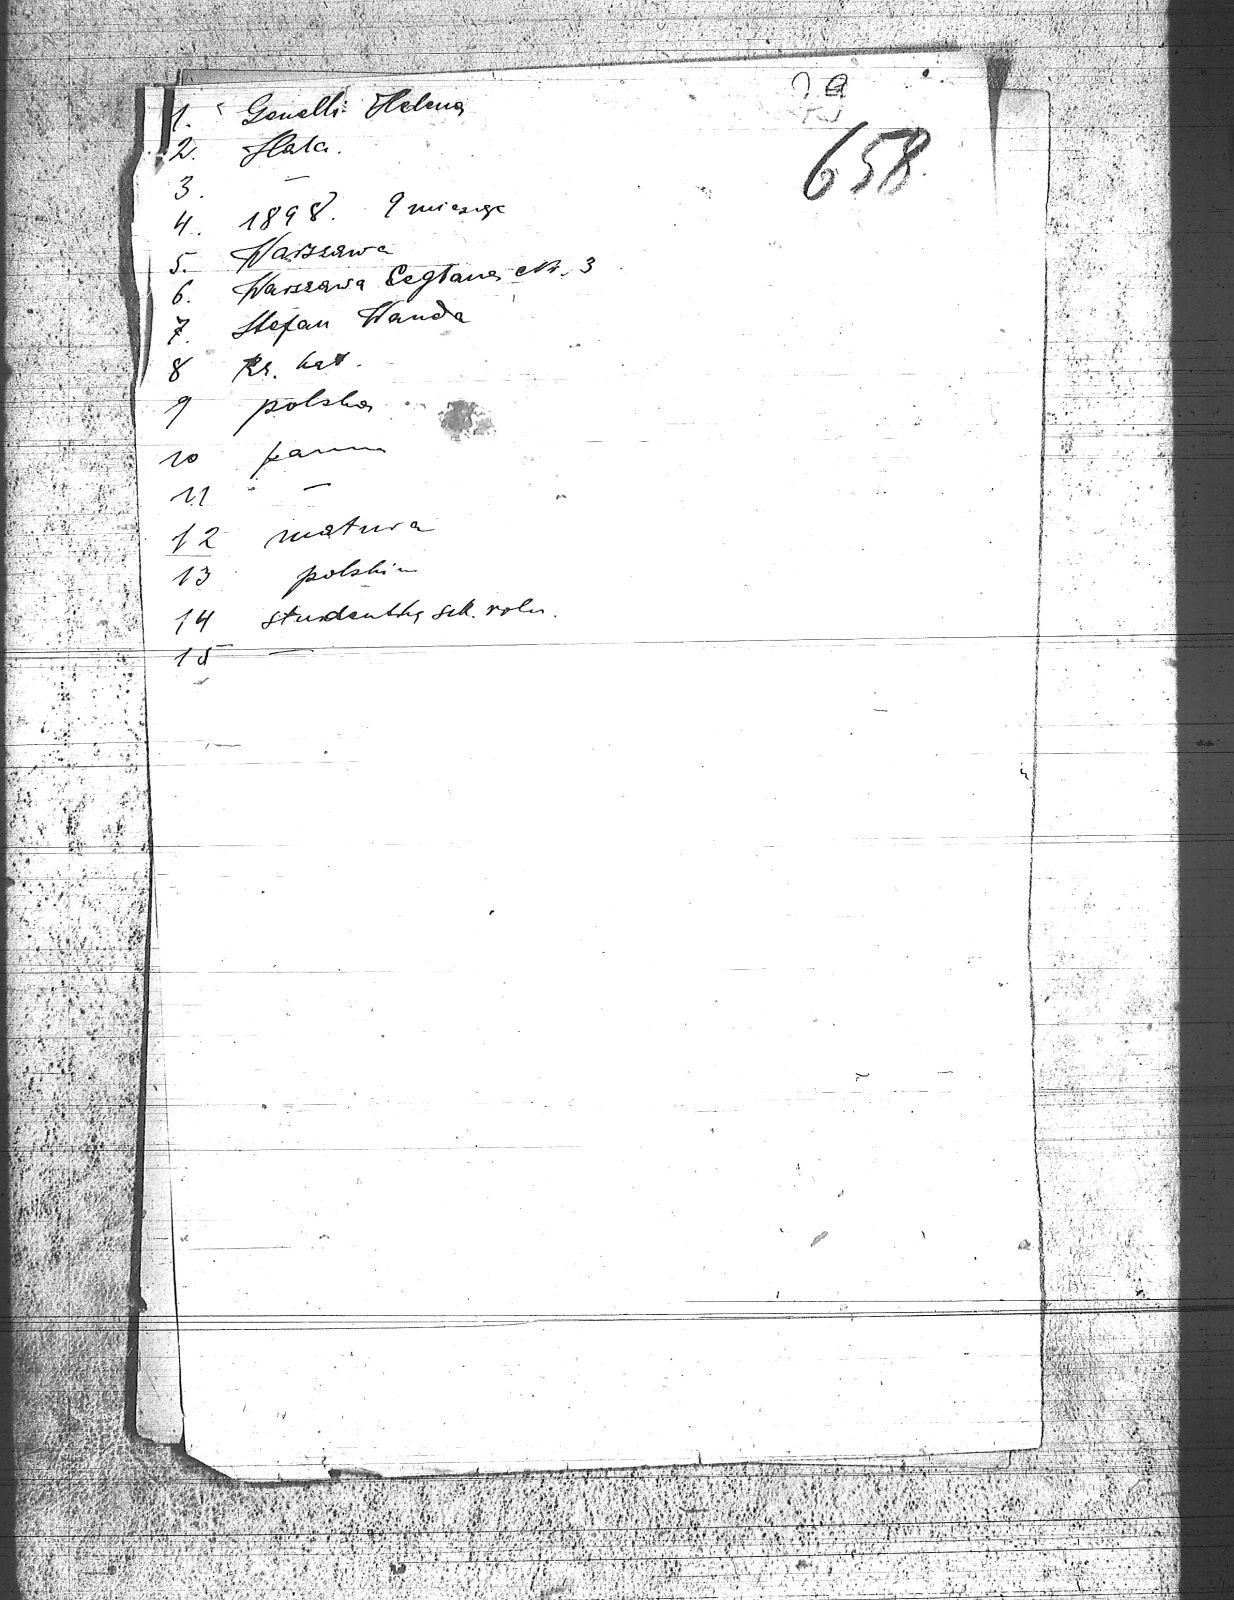 658.
1. Gonelli Helena
2. Hala.
3. —
4. 1898. 9 miesiąc
5. Warszawa
6. Warszawa Ceglana Nr. 3
7. Stefan Wanda
8 Rz. kat.
9 polska
10 panna
11 —
12 matura
13 polskim
14 studentka szk. roln.
15 —